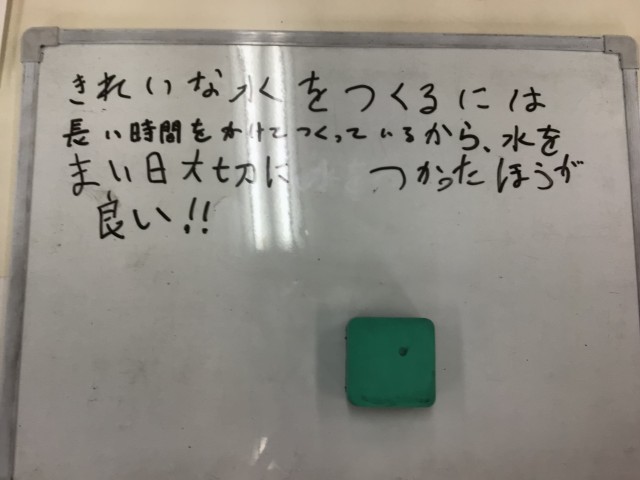 きれいな水をつくるには
長い時間をかけてつくっているから、水を
まい日大切に つかったほうが
良い!!